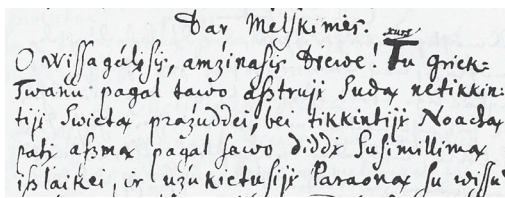 Dar Melskimės.
kurs
O Wissagálįsis, amźinasis Diewe! Tu griek=
Twanu pagal tawo aßtrųjį Sudą netikkin=
tįjį Swietą prazuddei, bei tikkintįjį Noachą
patį aßmą pagal sawo diddį Susimillimą
ißlaikei, ir uźukietusįjį Paraoną su wissu